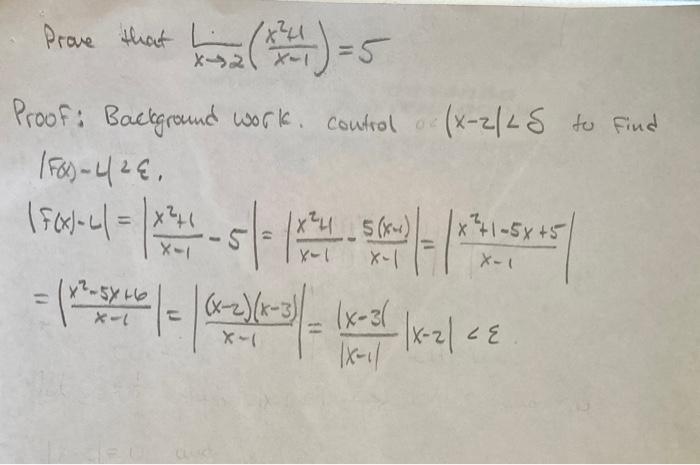 Prove that Lim x→2 (x²+1 / x-1) = 5
Proof: Background work. control |x-2|<δ to find
|f(x)-L|<ε.
|f(x)-L| = |x²+1 / x-1 - 5| = |x²+1 / x-1 - 5(x-1) / x-1| = |x²+1-5x+5 / x-1|
= |x²-5x+6 / x-1| = |(x-2)(x-3) / x-1| = |x-3| / |x-1| |x-2| < ε